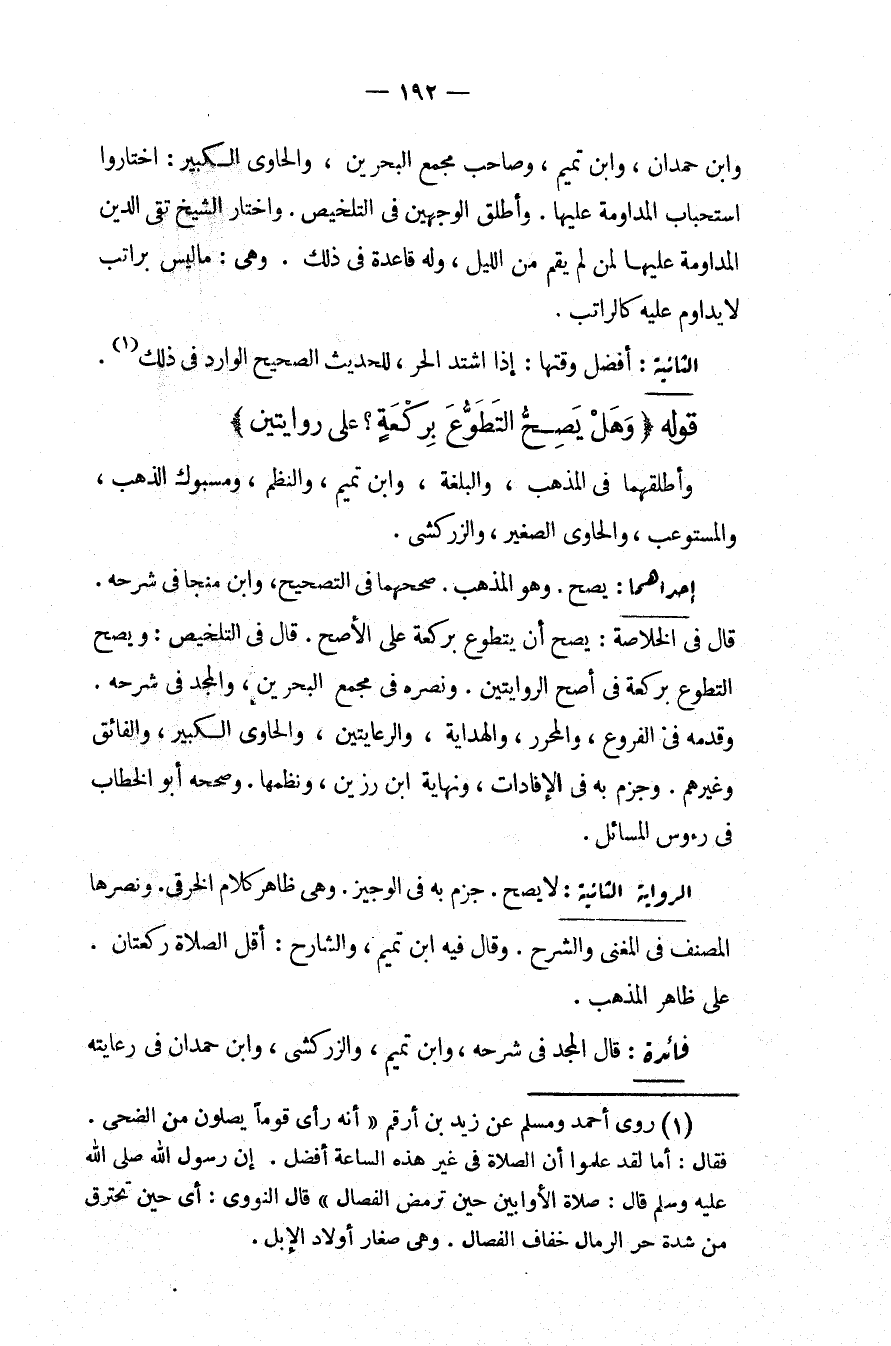 — ١٩٢ —
وابن حمدان ، وابن تميم ، وصاحب مجمع البحرين ، والحاوى الـكبير : اختاروا
استحباب المداومة عليها . وأطلق الوجهين فى التلخيص . واختار الشيخ تقى الدين
المداومة عليهـا لمن لم يقم من الليل ، وله قاعدة فى ذلك . وهى : ماليس براتب
لايداوم عليه كالراتب .
الثانية : أفضل وقتها : إذا اشتد الحر ، للحديث الصحيح الوارد فى ذلك(١) .
قوله ﴿ وَهَلْ يَصِـحُّ التَطَوُّعَ بِرَكْعَةٍ ؟ على روايتين ﴾
وأطلقهما فى المذهب ، والبلغة ، وابن تميم ، والنظم ، ومسبوك الذهب ،
والمستوعب ، والحاوى الصغير ، والزركشى .
إحداهما : يصح . وهو المذهب . صححهما فى التصحيح، وابن منجا فى شرحه .
قال فى الخلاصة : يصح أن يتطوع بركعة على الأصح . قال فى التلخيص : ويصح
التطوع بركعة فى أصح الروايتين . ونصره فى مجمع البحرين ، والمجد فى شرحه .
وقدمه فى الفروع ، والمحرر ، والهداية ، والرعايتين ، والحاوى الـكبير ، والفائق
وغيرهم . وجزم به فى الإفادات ، ونهاية ابن رزين ، ونظمها . وصححه أبو الخطاب
فى رءوس المسائل .
الرواية الثانية : لايصح . جزم به فى الوجيز . وهى ظاهر كلام الخرقى . ونصرها
المصنف فى المغنى والشرح . وقال فيه ابن تميم ، والشارح : أقل الصلاة ركعتان .
على ظاهر المذهب .
فائدة : قال المجد فى شرحه ، وابن تميم ، والزركشى ، وابن حمدان فى رعايته
(١) روى أحمد ومسلم عن زيد بن أرقم « أنه رأى قوماً يصلون من الضحى .
فقال : أما لقد علموا أن الصلاة فى غير هذه الساعة أفضل . إن رسول الله صلى الله
عليه وسلم قال : صلاة الأوابين حين ترمض الفصال » قال النووى : أى حين تحترق
من شدة حر الرمال خفاف الفصال . وهى صغار أولاد الإبل .